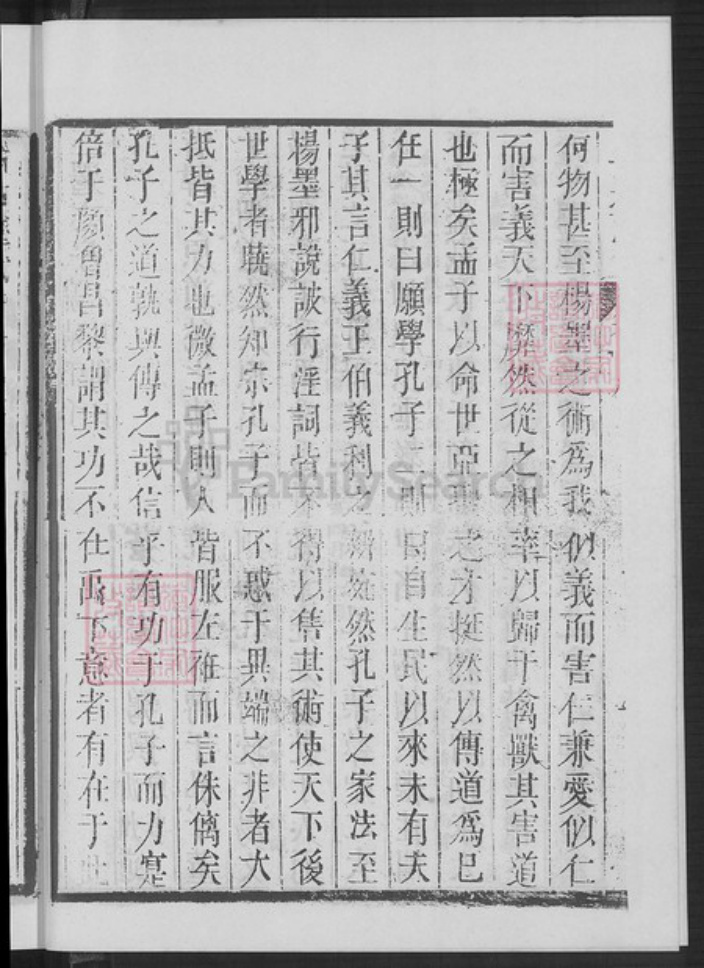 何物甚至楊墨之術爲我似義而害仁兼愛似仁
而害義天下靡然從之相率以歸于禽獸其害道
也極矣孟子以命世亞聖之才挺然以傳道爲己
任一則曰願學孔子二則曰自生民以來未有夫
子其言仁義王伯義利之辨宛然孔子之家法至
楊墨邪說詖行淫詞皆不得以售其術使天下後
世學者曉然知宗孔子而不惑于異端之非者大
抵皆其力也微孟子則人皆服左衽而言侏儷矣
孔子之道孰與傳之哉信乎有功于孔子而力寔
倍于顏曾昌黎謂其功不在禹下意者有在于此
FamilySearch